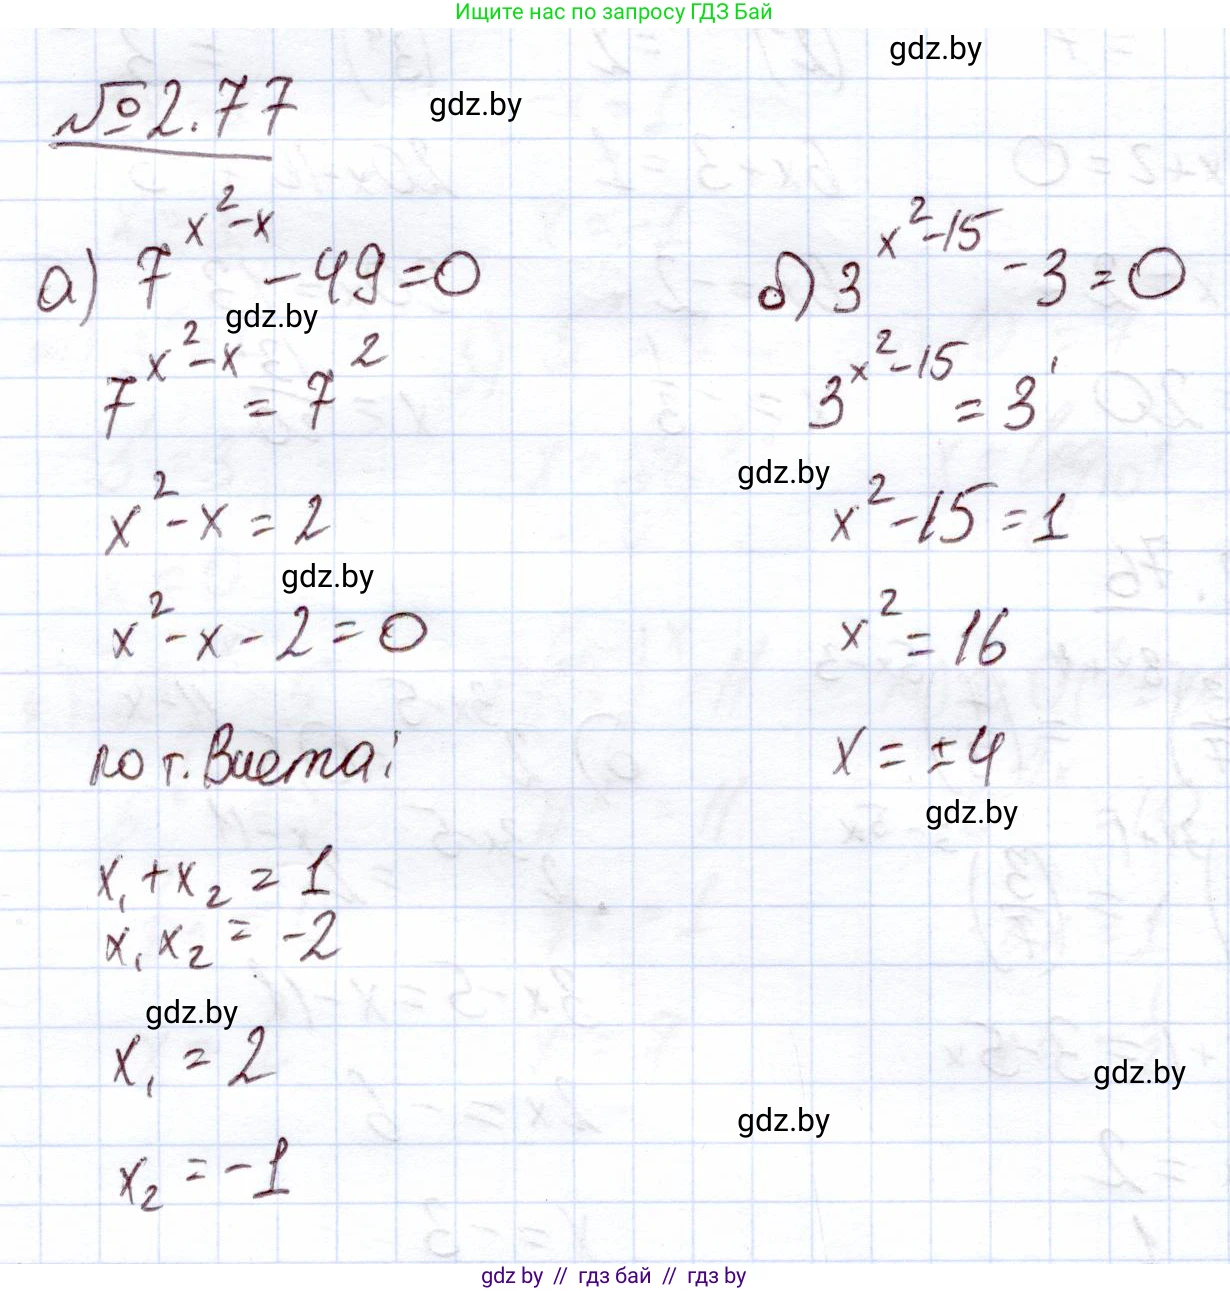 Ищите нас по запросу ГДЗ Бай
gdz.by
№2.77
gdz.by
а) 7^{x²-x} - 49 = 0
gdz.by
7^{x²-x} = 7²
x² - x = 2
gdz.by
x² - x - 2 = 0
по т. Виета:
x₁ + x₂ = 1
x₁ x₂ = -2
gdz.by
x₁ = 2
x₂ = -1
б) 3^{x²-15} - 3 = 0
3^{x²-15} = 3¹
gdz.by
x² - 15 = 1
x² = 16
x = ±4
gdz.by
gdz.by
gdz.by
gdz by // гдз бай // гдз by